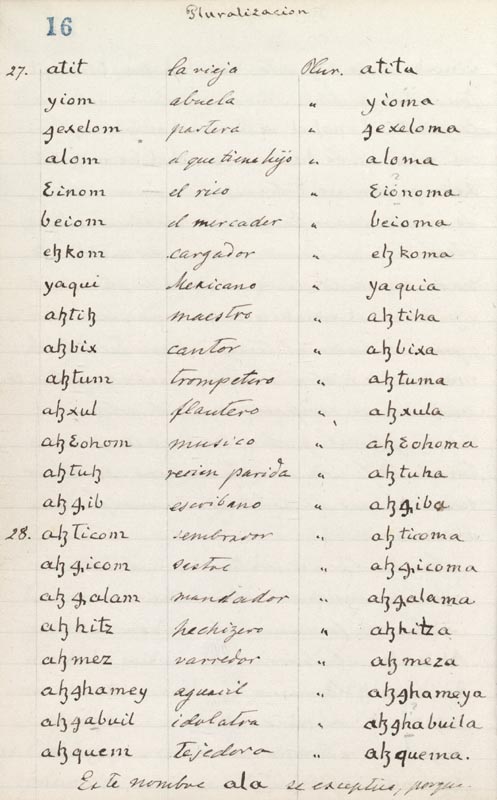 Pluralizacion
16
27. atit la vieja Plur. atita
yiom abuela " yioma
gexelom partera " gexeloma
alom el que tiene hijo " aloma
Ɛinom el rico " Ɛinoma
beiom el mercader " beioma
eꜩkom cargador " eꜩkoma
yaqui Mexicano " yaquia
aꜩtiꜩ maestro " aꜩtiha
aꜩbix cantor " aꜩbixa
aꜩtum trompetero " aꜩtuma
aꜩxul flautero " aꜩxula
aꜩƐohom musico " aꜩƐohoma
aꜩtuꜩ recien parida " aꜩtuha
aꜩꜭib escribano " aꜩꜭiba
28. aꜩticom sembrador " aꜩticoma
aꜩꜭicom sastre " aꜩꜭicoma
aꜩꜭalam mandador " aꜩꜭalama
aꜩhitz hechizero " aꜩhitza
aꜩmez varredor " aꜩmeza
aꜩghamey aguacil " aꜩghameya
aꜩgabuil idolatra " aꜩghabuila
aꜩquem tejedora " aꜩquema.
Este nombre ala se exceptua, porque